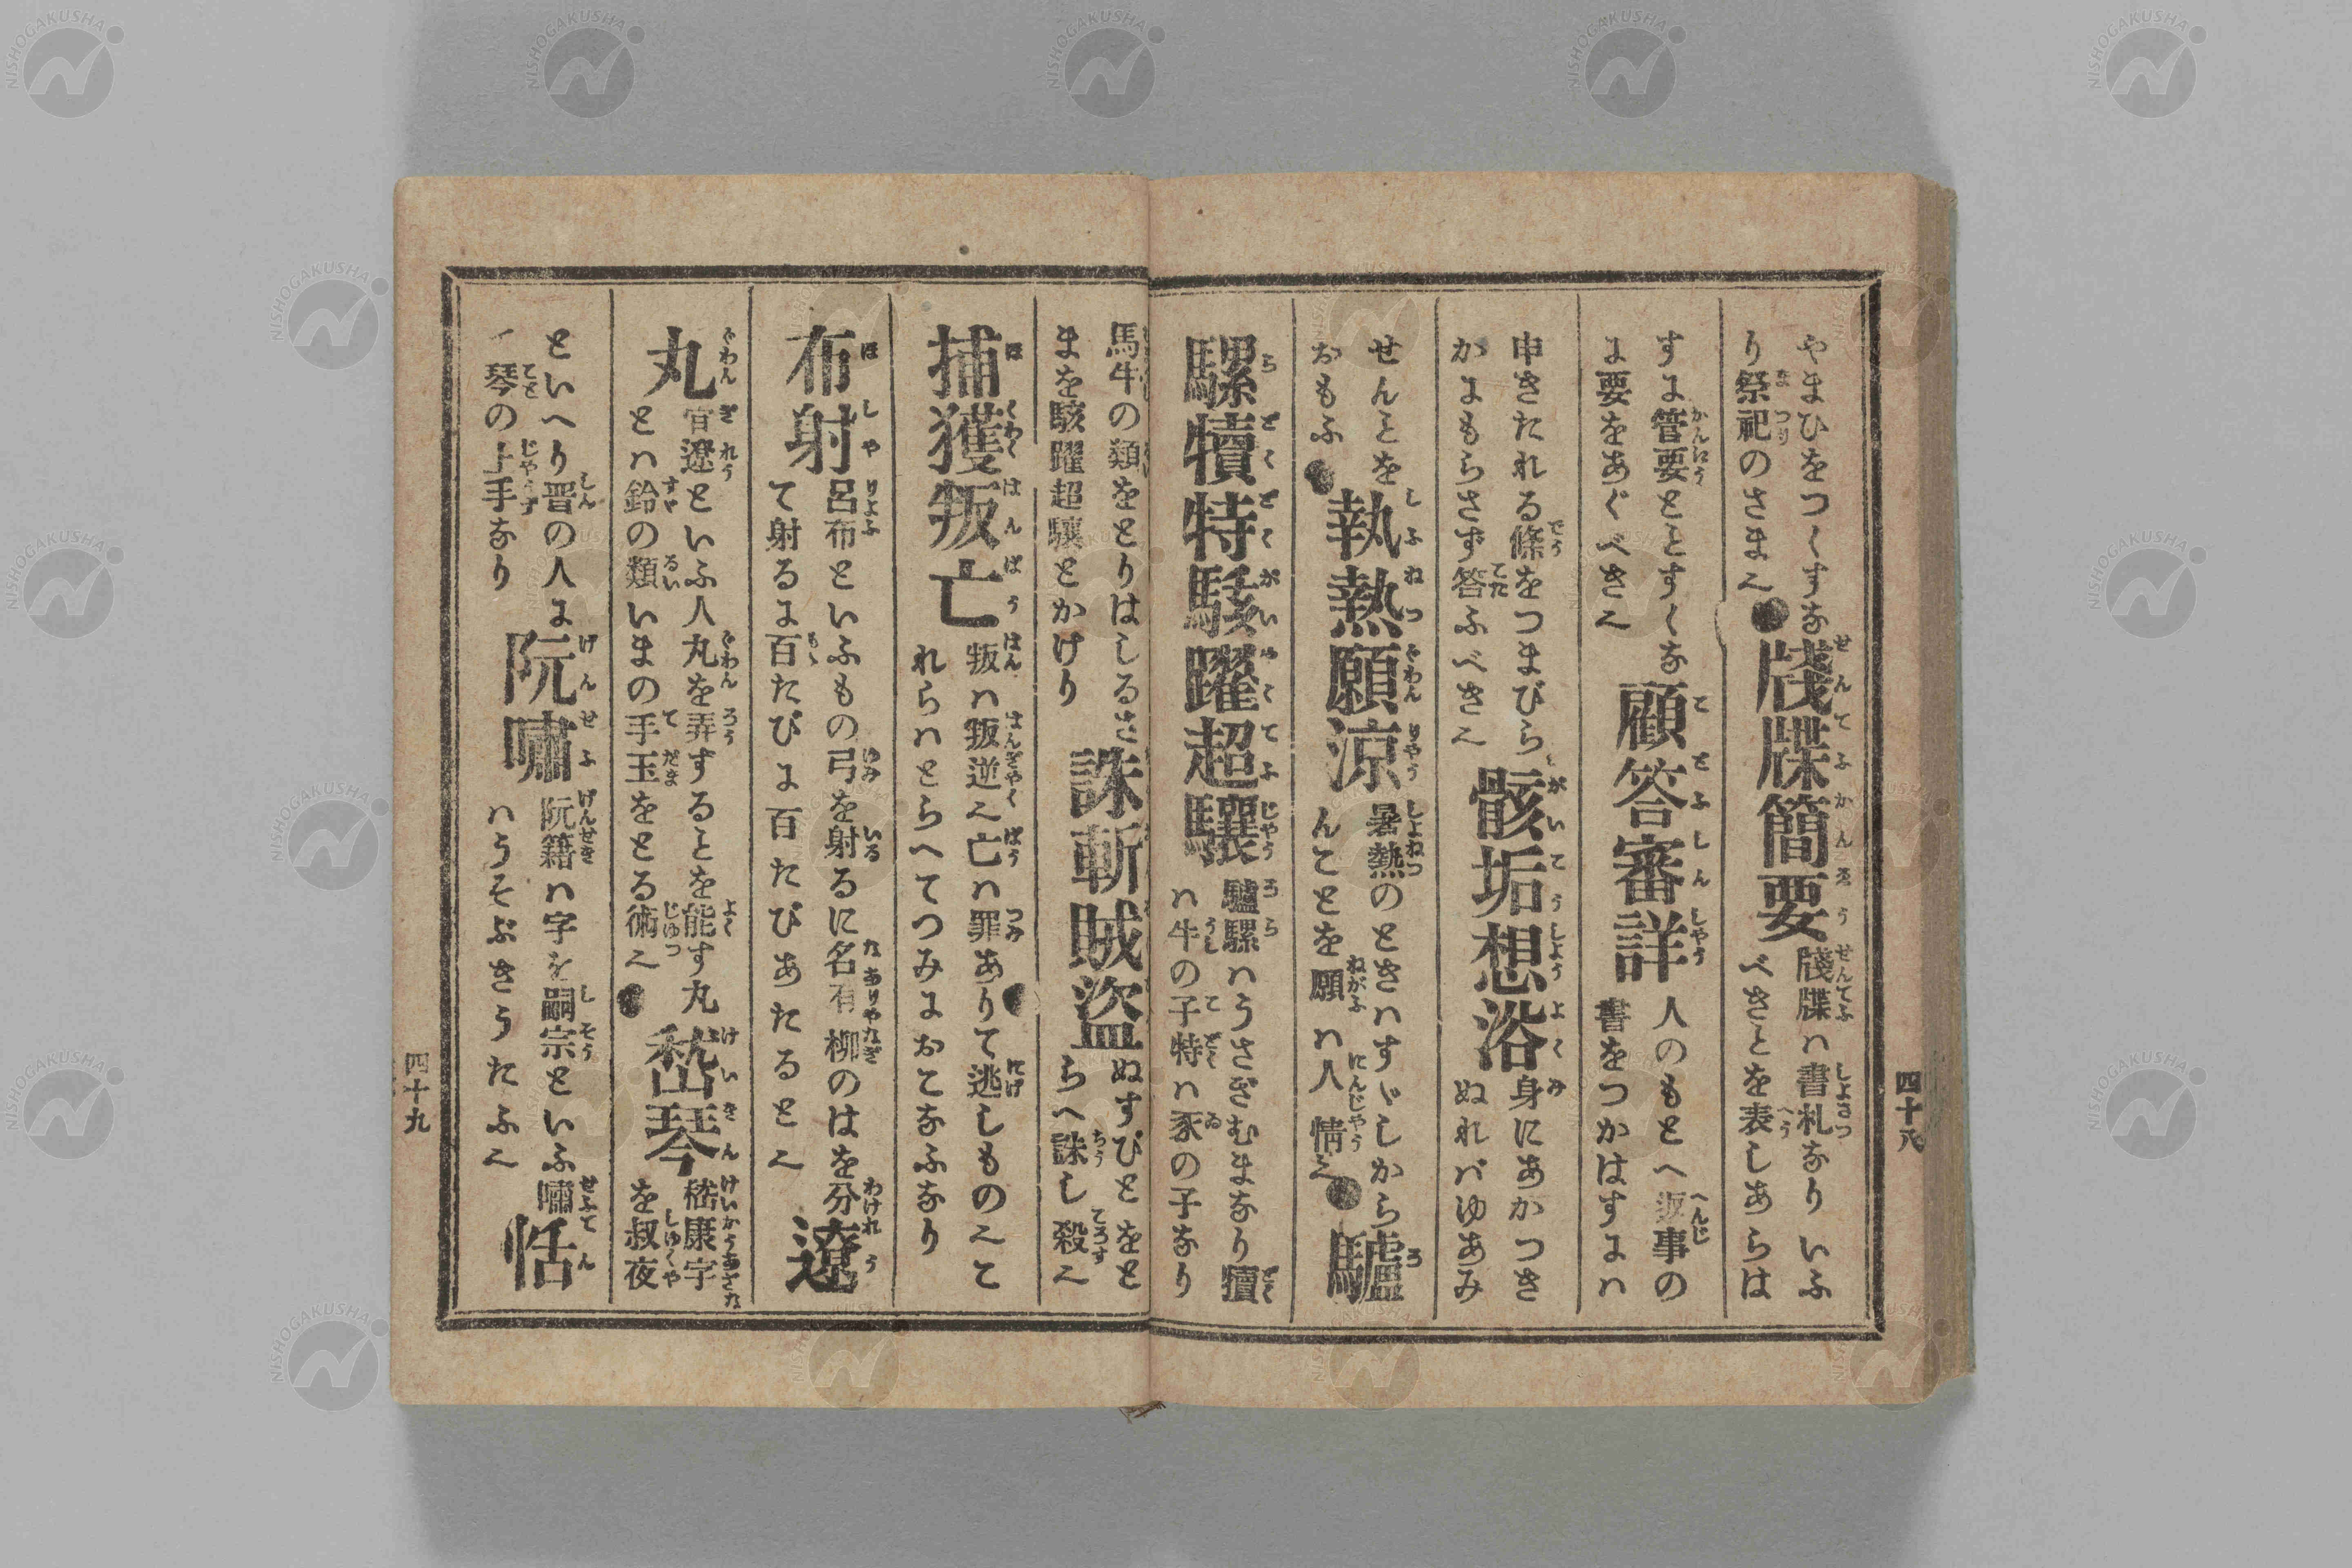 やまひをつくすな
り祭祀のさまく
牋牒簡要
牋牒ハ書札なりいふ
べきとを表しあらは
すに管要ととすくな
に要をあぐべきく
顧答審詳
人のもとへ返事の
書をつかはすにハ
申きたれる條をつまびら
かにもらさず答ふべきく
骸垢想浴
身にあかつき
ぬれバゆあみ
せんとを
おもふ
執熱願涼
暑熱のときハすゞしから
んことを願ハ人情く
驢
騾犢特駭躍超驤
驢騾ハうさぎむまなり犢
ハ牛の子特ハ豕の子なり
四十八
馬牛の類をとりはしるさ
まを駭躍超驤とかけり
誅斬賊盗
ぬすびとをと
らへ誅し殺く
捕獲叛亡
叛ハ叛逆く亡ハ罪ありて逃しものくこ
れらハとらへてつみにおこなふなり
布射
呂布といふもの弓を射るに名有柳のはを分
て射るに百たびに百たびあたるとく
遼
丸
官遼といふ人丸を弄することを能す丸
とハ鈴の類いまの手玉をとる術く
嵆琴
嵆康字
を叔夜
といへり晋の人に
琴の上手なり
阮嘯
阮籍ハ字を嗣宗といふ嘯
ハうそぶきうたふく
恬
四十九
NISHOGAKUSHA